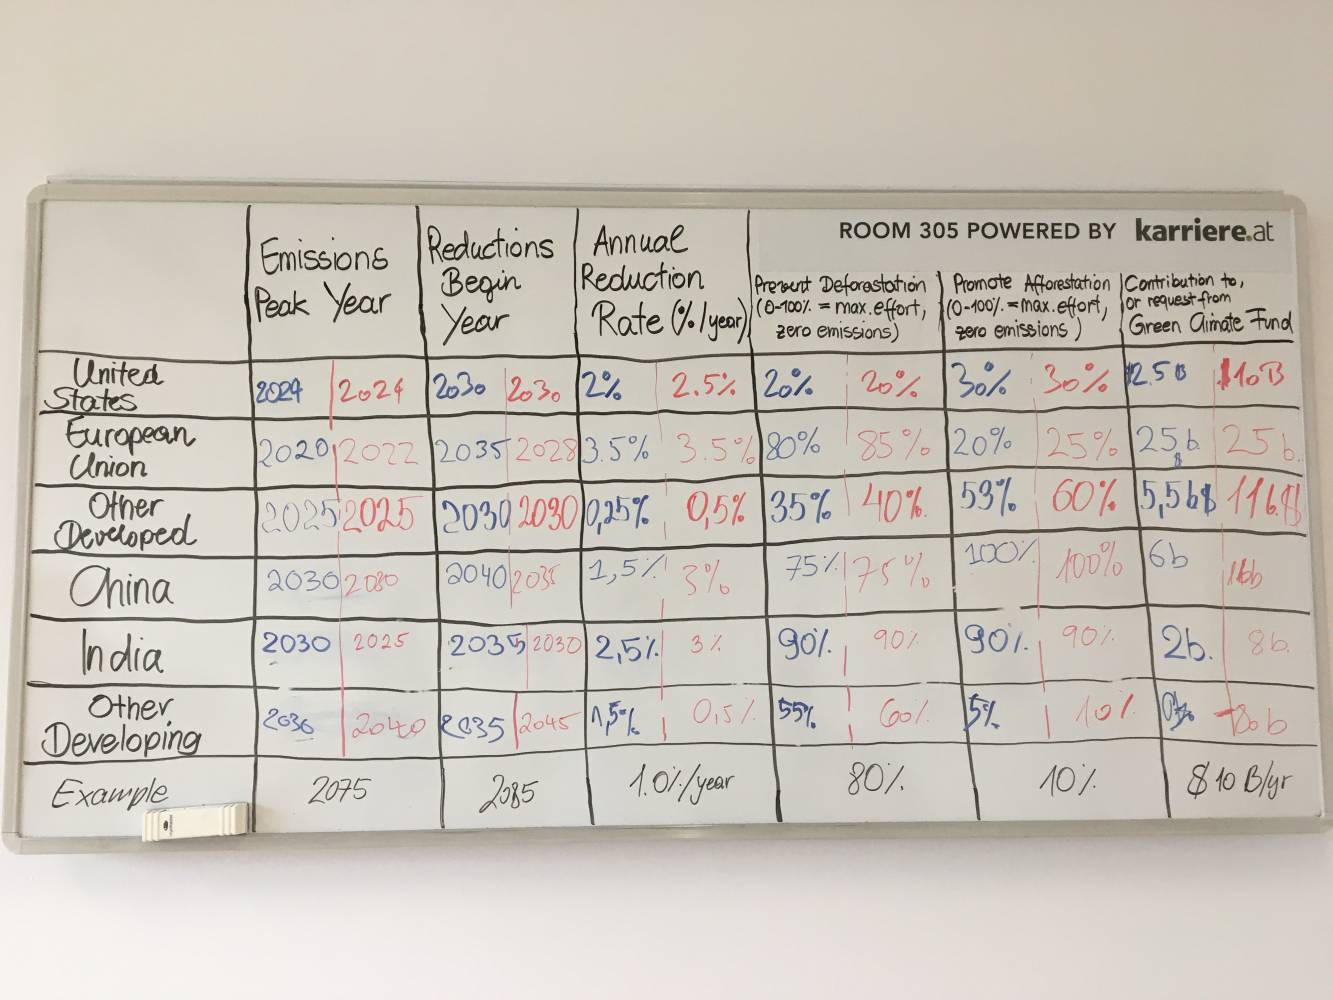 ROOM 305 POWERED BY karriere.at
Emissions
Peak Year
Reductions
Begin
Year
Annual
Reduction
Rate (%/year)
Prevent Deforestation
(0-100% = max. effort,
zero emissions)
Promote Afforestation
(0-100% = max. effort,
zero emissions)
Contribution to,
or request from
Green Climate Fund
United
States
2024 2024 2030 2030 2% 2.5% 20% 20% 30% 30% $2.5B $10B
European
Union
2020 2022 2035 2028 3.5% 3.5% 80% 85% 20% 25% 25b. $ 25b.
Other
Developed
2025 2025 2030 2030 0,25% 0,5% 35% 40% 53% 60% 5,5b$ 11b$
China
2030 2030 2040 2035 1,5% 3% 75% 75% 100% 100% 6b 16b
India
2030 2025 2035 2030 2,5% 3% 90% 90% 90% 90% 2b. 8b.
Other
Developing
2036 2040 2035 2045 1,5% 0,5% 55% 60% 5% 10%
Example 2075 2085 1.0%/year 80% 10% $10 B/yr